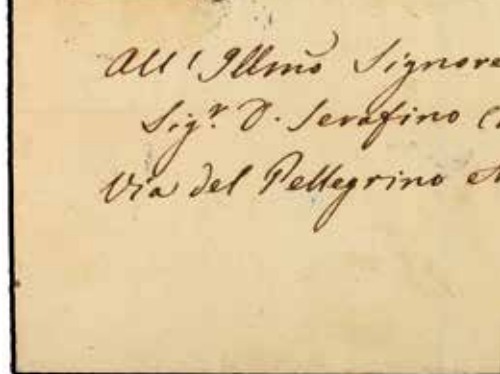 All' Illmo Signore
Sigr. D. Serafino
Via del Pellegrino